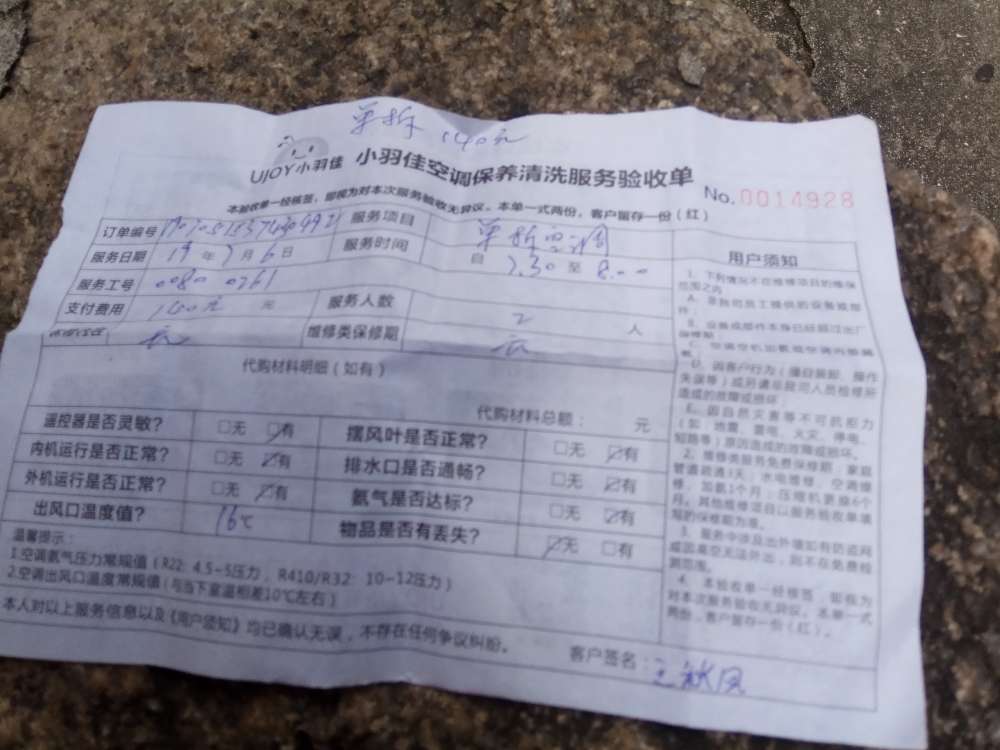 单拆 140元
UJOY小羽佳 小羽佳空调保养清洗服务验收单
No.0014928
本验收单一经核签，即视为对本次服务验收无异议。本单一式两份，客户留存一份（红）
订单编号 服务项目 单拆空调
服务日期 19年7月6日 服务时间 自 7.30 至 8.00
服务工号 0080 0261
支付费用 140元 元 服务人数 2 人
维修类保修期 无
代购材料明细（如有）
代购材料总额： 元
温控器是否灵敏？ □无 ☑有 摆风叶是否正常？ □无 ☑有
内机运行是否正常？ □无 ☑有 排水口是否通畅？ □无 ☑有
外机运行是否正常？ □无 ☑有 氨气是否达标？ □无 ☑有
出风口温度值？ 16℃ 物品是否有丢失？ ☑无 □有
温馨提示：
1.空调氨气压力常规值（R22：4.5~5压力，R410/R32：10~12压力）
2.空调出风口温度常规值（与当下室温相差10℃左右）
本人对以上服务信息以及《用户须知》均已确认无误，不存在任何争议纠纷。
客户签名：王秋凤
用户须知
1、下列情况不在维修项目的维保
范围之内
A、非我司员工提供的设备或部
件；
D、因客户行为（擅自装卸、操作
失误等）或另请非我司人员检修所
造成的故障或损坏。
E、因自然灾害等不可抗拒力
（如：地震、雷电、火灾、停电、
短路等）原因造成的故障或损坏。
2、维修类服务免费保修期：家庭
管道疏通3天；水电维修、空调维
修、加氨1个月；压缩机更换6个
月。其他维修项目以服务验收单填
写的保修期为准。
3、服务中涉及出外墙如有防盗网
或因高空无法外出，则不在免费检
测范围。
4、本验收单一经核签，即视为
对本次服务验收无异议。本单一式
两份，客户留存一份（红）。